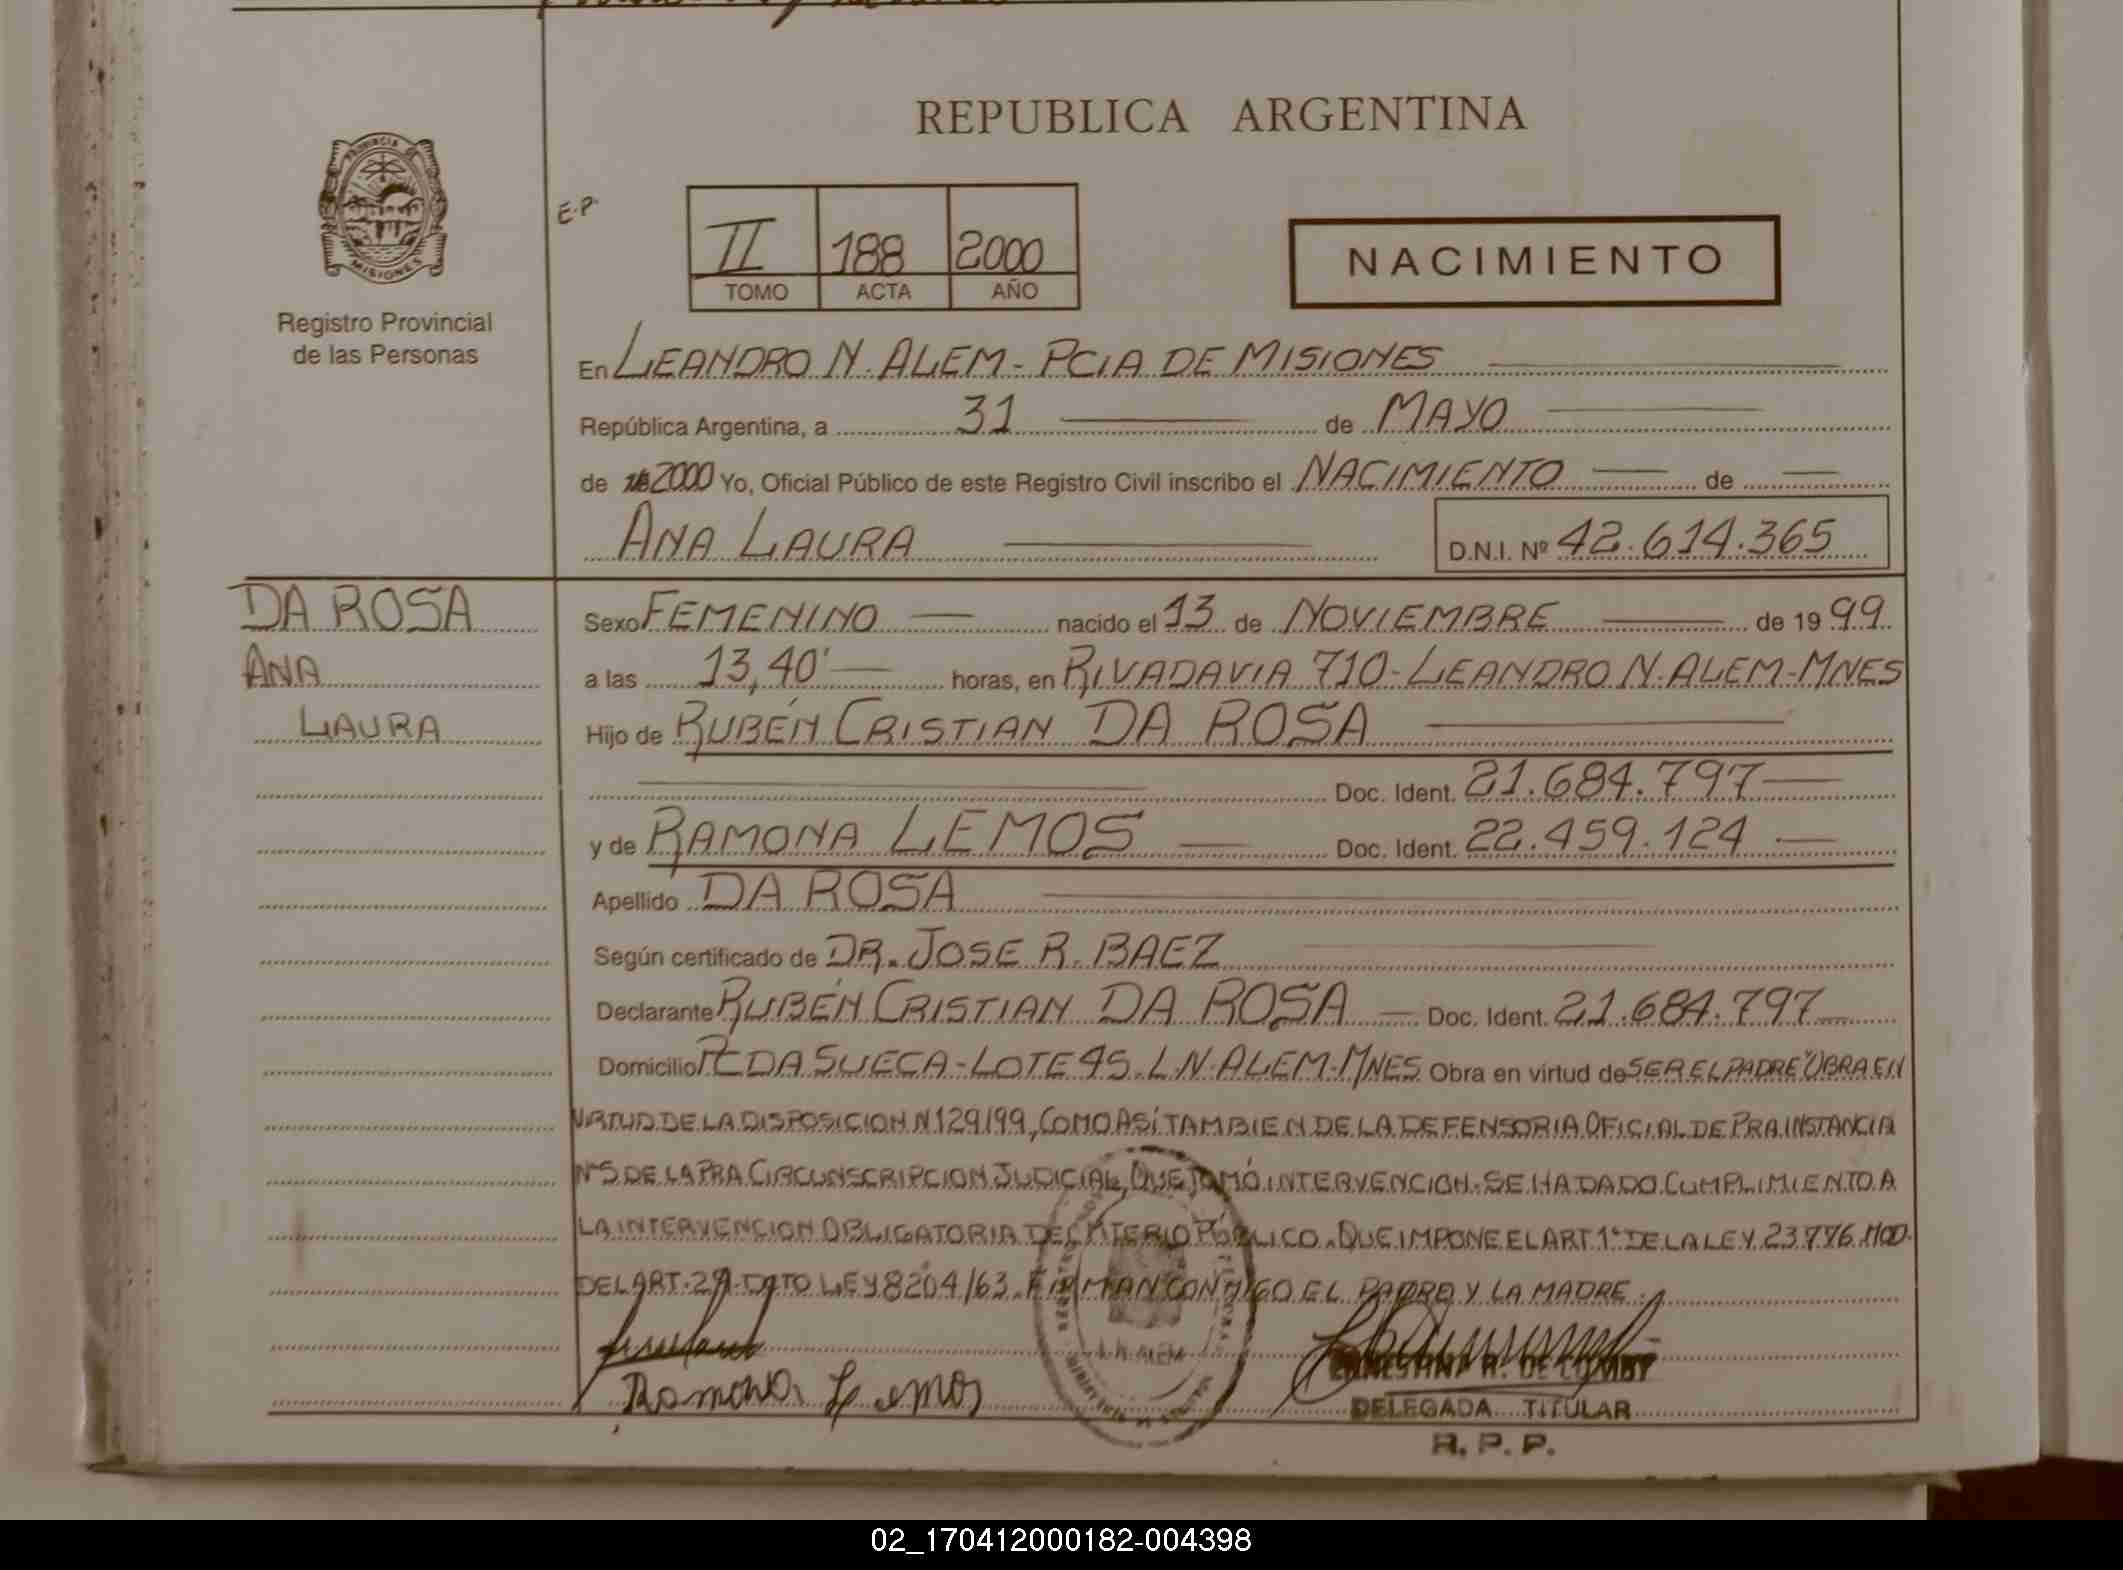 REPUBLICA ARGENTINA
PROVINCIA DE
MISIONES
Registro Provincial
de las Personas
E.P.
II 188 2000
TOMO ACTA AÑO
NACIMIENTO
En LEANDRO N. ALEM - PCIA DE MISIONES
República Argentina, a 31 de MAYO
de 2000 Yo, Oficial Público de este Registro Civil inscribo el NACIMIENTO de
ANA LAURA D.N.I. Nº 42.614.365
DA ROSA
ANA
LAURA
Sexo FEMENINO nacido el 13 de NOVIEMBRE de 1999.
a las 13,40' horas, en RIVADAVIA 710 - LEANDRO N. ALEM - MNES
Hijo de RUBÉN CRISTIAN DA ROSA
Doc. Ident. 21.684.797
y de RAMONA LEMOS Doc. Ident. 22.459.124
Apellido DA ROSA
Según certificado de DR. JOSE R. BAEZ
Declarante RUBÉN CRISTIAN DA ROSA Doc. Ident. 21.684.797
Domicilio PCDA SUECA - LOTE 45. L.N. ALEM - MNES Obra en virtud de SER EL PADRE "OBRA EN
VIRTUD DE LA DISPOSICION N 129/99, COMO ASÍ TAMBIEN DE LA DEFENSORIA OFICIAL DE PRA INSTANCIA
Nº 5 DE LA PRA CIRCUNSCRIPCION JUDICIAL, QUE TOMÓ INTERVENCION. SE HA DADO CUMPLIMIENTO A
LA INTERVENCION OBLIGATORIA DEL MTERIO PÚBLICO. QUE IMPONE EL ART 1º DE LA LEY 23.776 MOD.
DEL ART. 29 DTO LEY 8204/63. FIRMAN CONMIGO EL PADRE Y LA MADRE.
Ramona Lemos
L.N. ALEM
DELEGADA TITULAR
R. P. P.
02_170412000182-004398